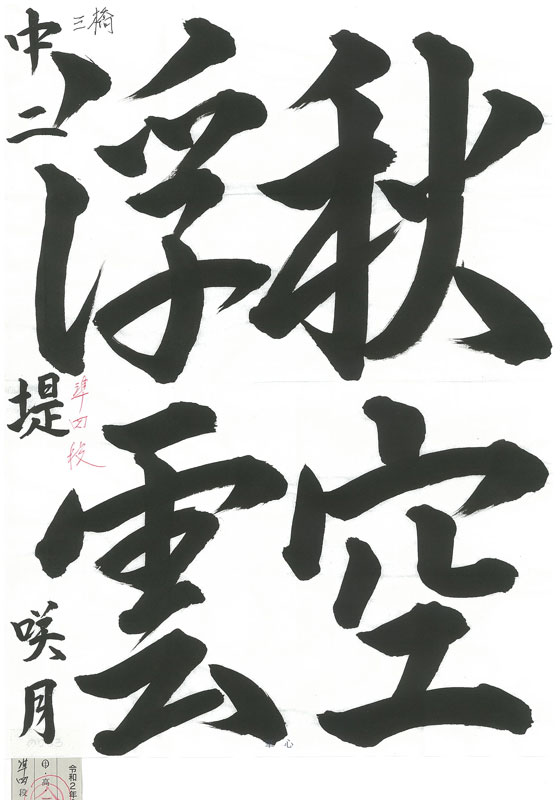 秋空
浮雲
三橋
中二 堤 咲月
準四段
令和2年
中・高・一
準四段